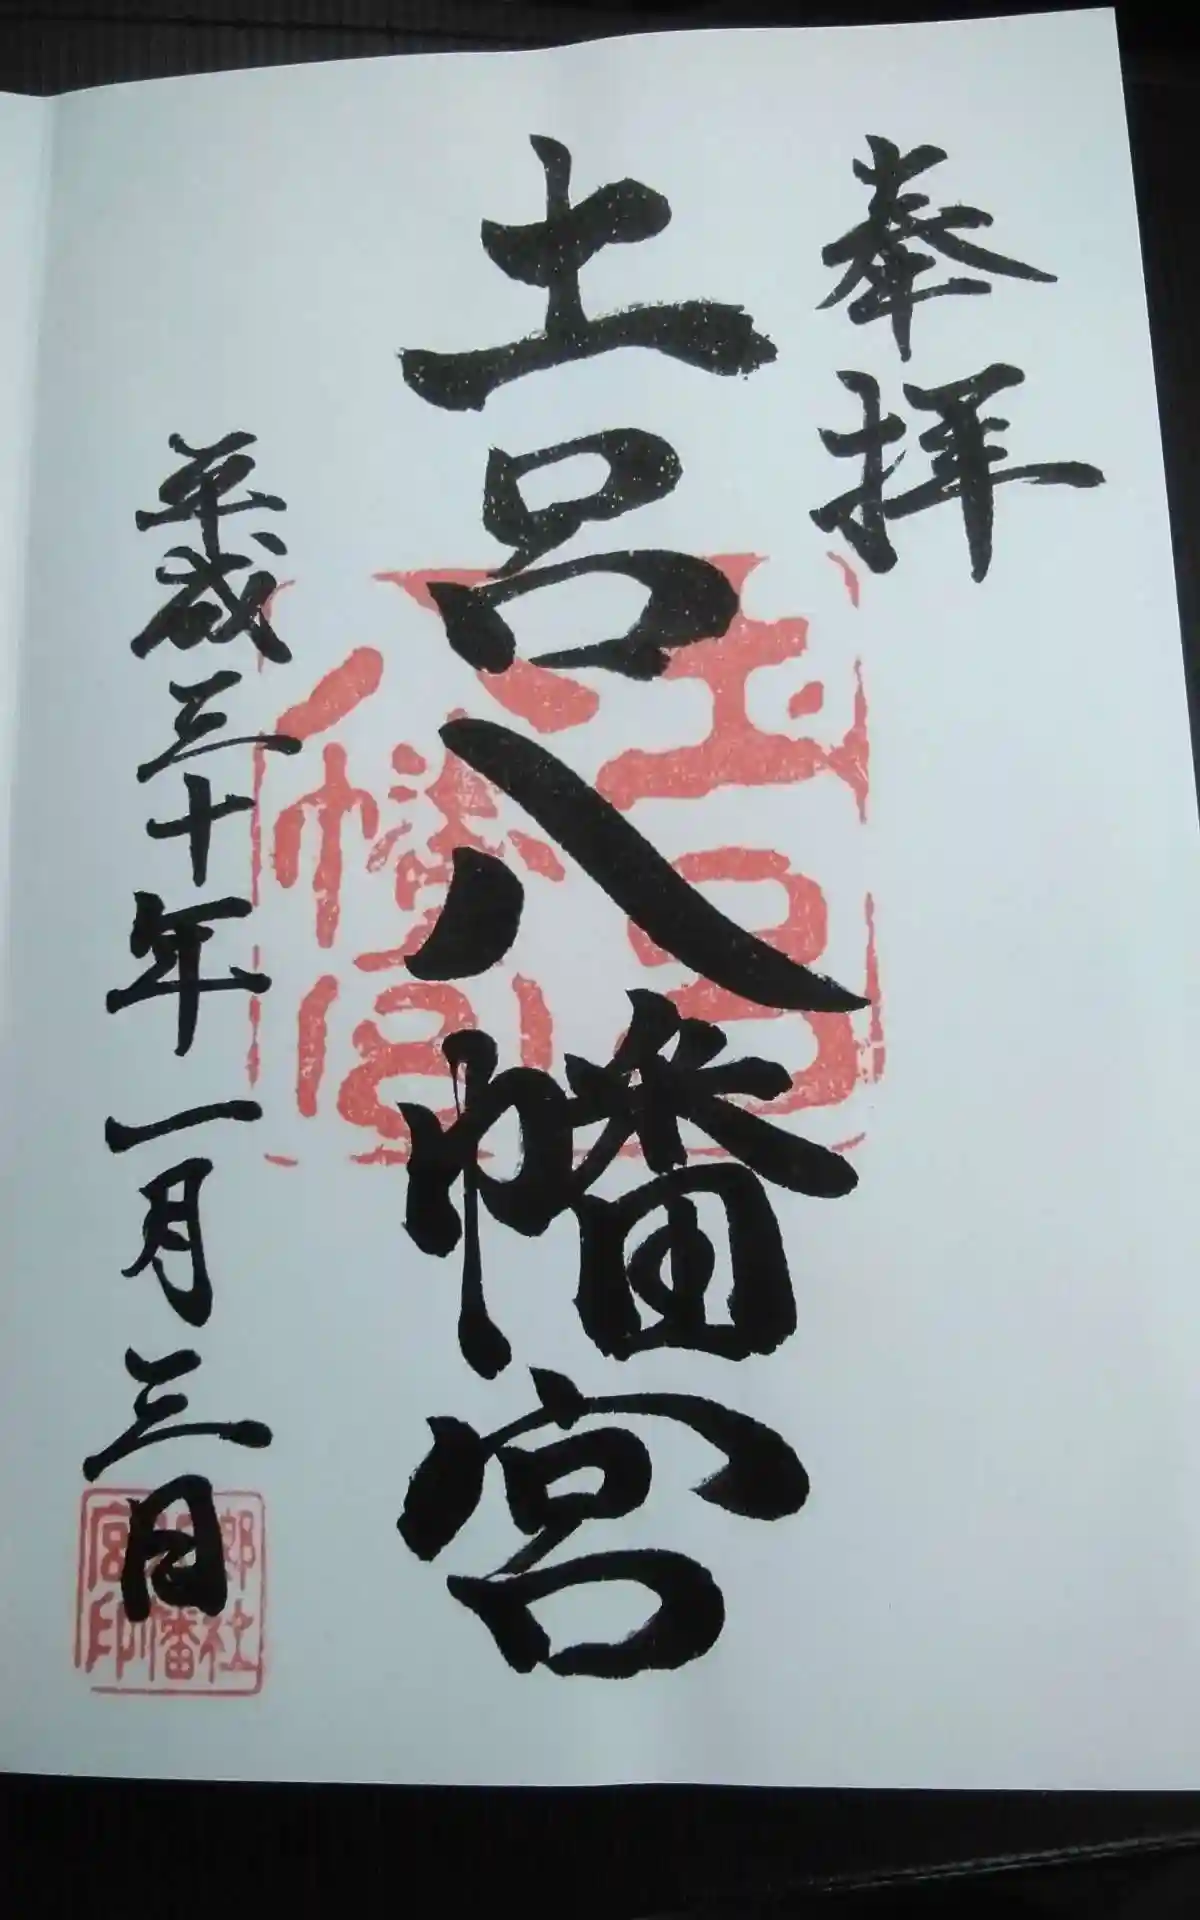 奉拝
土呂八幡宮
平成三十年一月三日
土呂
八幡宮
郷社
八幡
宮印